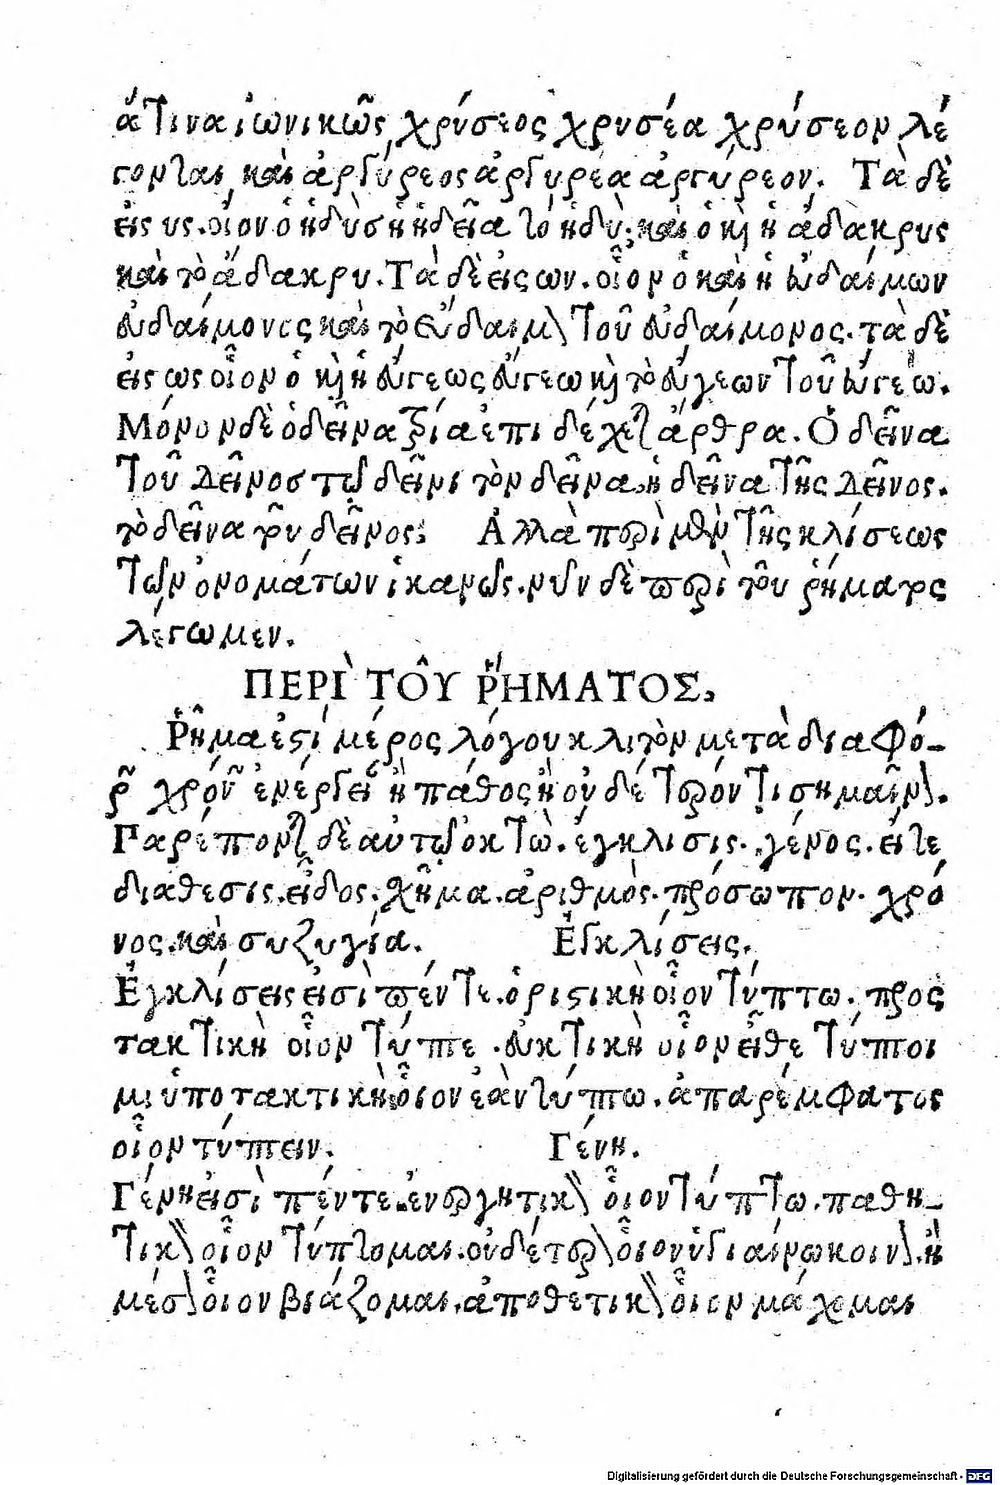 ἅτινα ἰωνικῶς χρύσεος χρυσέα χρύσεον λέ
γονται καὶ ἀργύρεος ἀργυρέα ἀργύρεον. Τὰ δὲ
εἰς υς. οἷον ὁ ἡδὺς ἡ ἡδεῖα τὸ ἡδὺ: καὶ ὁ κὴ ἡ ἄδακρυς
καὶ τὸ ἄδακρυ. Τὰ δὲ εἰς ων. οἷον ὁ καὶ ἡ εὐδαίμων
εὐδαίμονες καὶ τὸ εὔδαιμον τοῦ εὐδαίμονος. τὰ δὲ
εἰς ως οἷον ὁ κὴ ἡ εὔγεως εὔγεω κὴ τὸ εὔγεων τοῦ εὔγεω.
Μόνον δὲ ὁ δεῖνα ἐπιδέχεται ἄρθρα. Ὁ δεῖνα
τοῦ δεῖνος τῷ δεῖνι τὸν δεῖνα, ἡ δεῖνα τῆς δεῖνος.
τὸ δεῖνα τοῦ δεῖνος: Ἀλλὰ περὶ μὲν τῆς κλίσεως
τῶν ὀνομάτων ἱκανῶς. νῦν δὲ περὶ τοῦ ῥήματος
λέγωμεν.
ΠΕΡῚ ΤΟῦ ῬΉΜΑΤΟΣ,
Ῥῆμα ἐστί μέρος λόγου κλιτὸν μετὰ διαφό-
ρου χρόνου ἐνέργειαν ἢ πάθος ἢ οὐδέτερόν τι σημαῖνον.
Παρέπονται δὲ αὐτῷ ὀκτὼ. ἔγκλισις. γένος. εἴτε
διάθεσις. εἶδος. σχῆμα. ἀριθμὸς. πρόσωπον. χρό
νος. καὶ συζυγία. Ἐγκλίσεις.
Ἐγκλίσεις εἰσὶ πέντε. ὁριστικὴ οἷον τύπτω. προς
τακτικὴ οἷον τύπτε. εὐκτικὴ οἷον εἴθε τύπτοι
μι ὑποτακτικὴ οἷον ἐὰν τύπτω. ἀπαρέμφατος
οἷον τύπτειν. Γένη.
Γένη εἰσὶ πέντε. ἐνεργητικὸν οἷον τύπτω. παθη-
τικὸν οἷον τύπτομαι. οὐδέτερον οἷον ὑγιαίνω κοινὸν. ἢ
μέσον οἷον βιάζομαι. ἀποθετικὸν οἷον μάχομαι
Digitalisierung gefördert durch die Deutsche Forschungsgemeinschaft - DFG